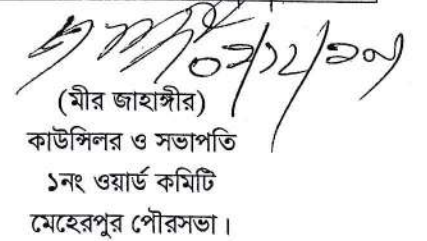 (মীর জাহাঙ্গীর)
কাউন্সিলর ও সভাপতি
১নং ওয়ার্ড কমিটি
মেহেরপুর পৌরসভা।